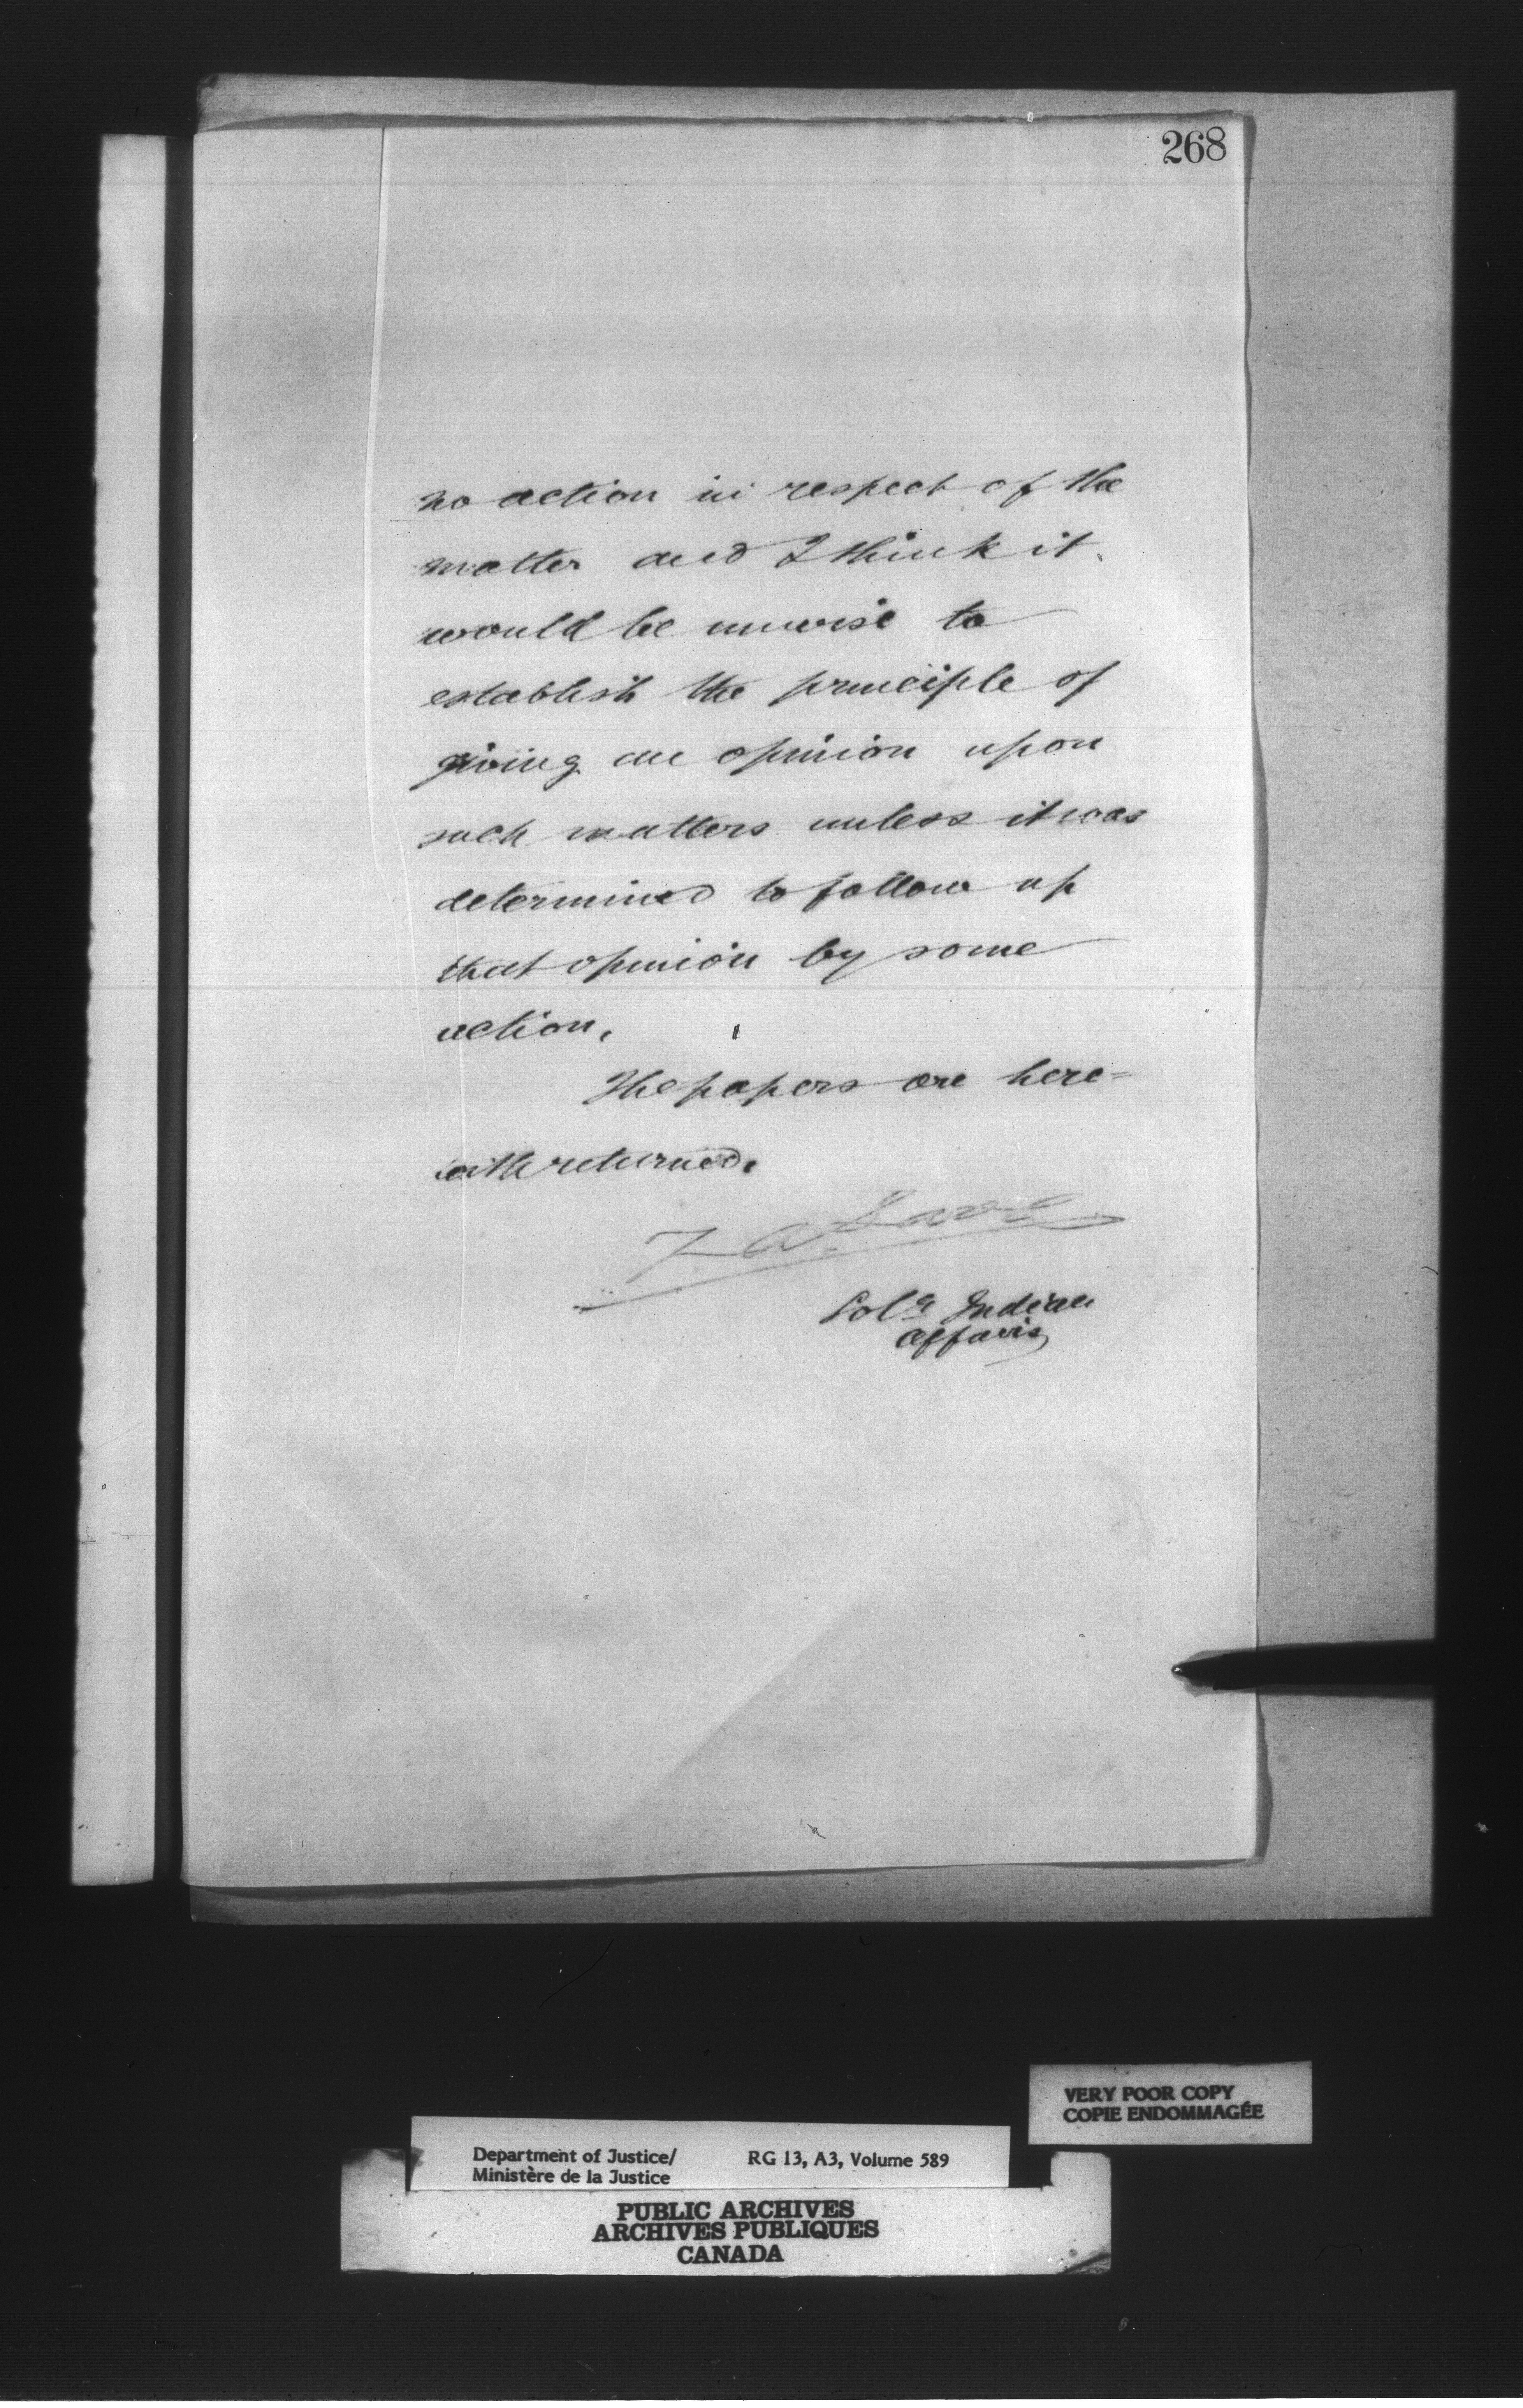 268
no action in respect of the
matter and I think it
would be unwise to
establish the principle of
giving an opinion upon
such matters unless it was
determined to follow up
that opinion by some
action.
The papers are here=
with returned.
Solr Indian
Affairs
VERY POOR COPY
COPIE ENDOMMAGÉE
Department of Justice/ RG 13, A3, Volume 589
Ministère de la Justice
PUBLIC ARCHIVES
ARCHIVES PUBLIQUES
CANADA